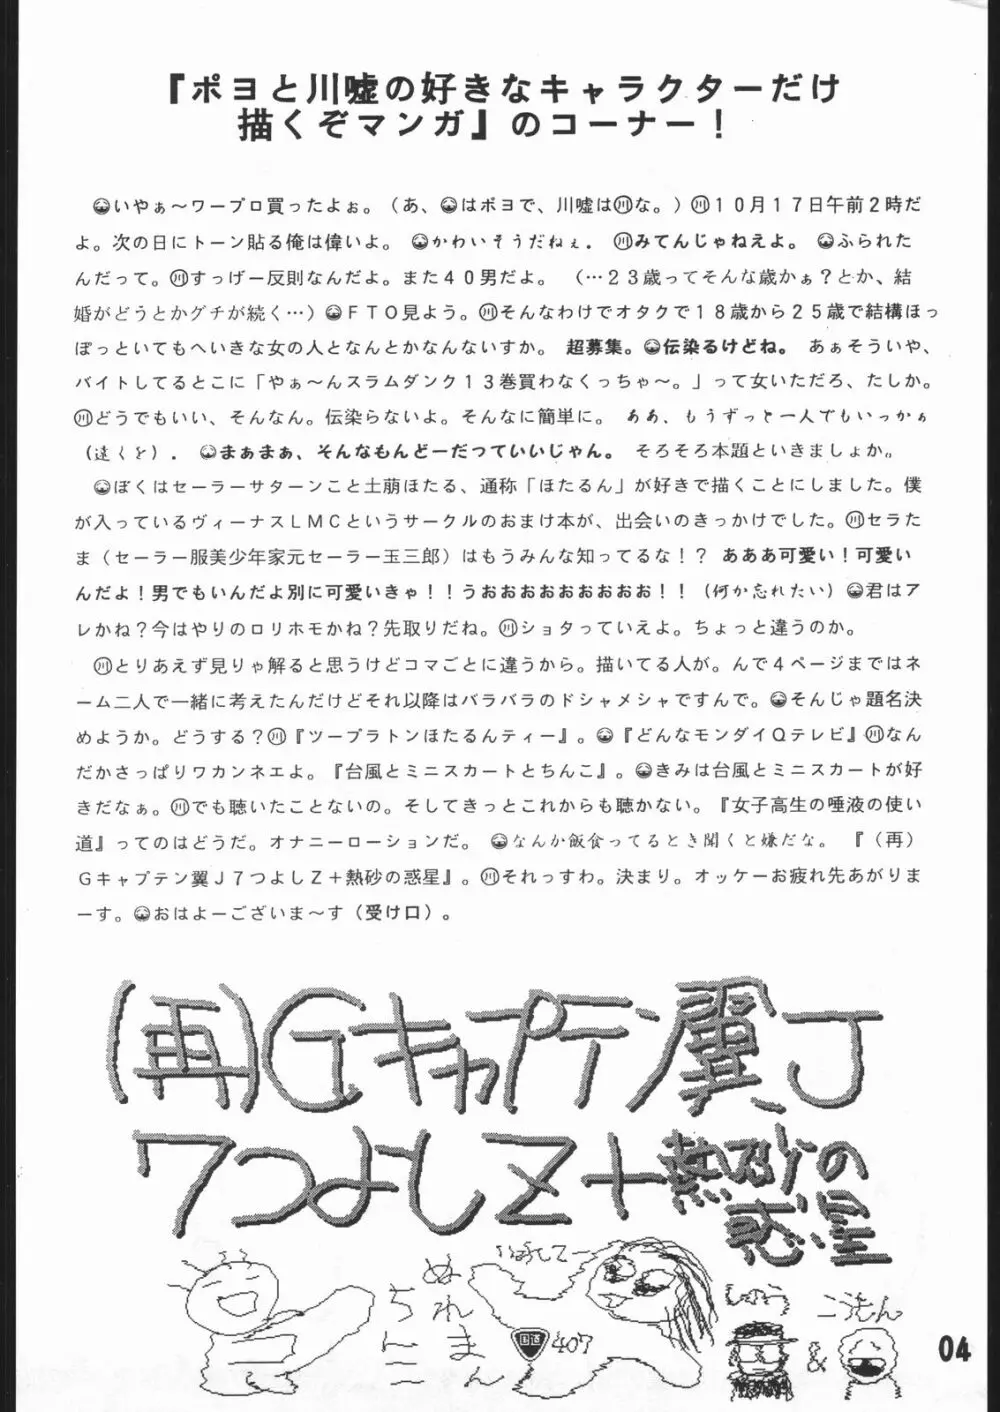 『ポヨと川嘘の好きなキャラクターだけ
描くぞマンガ』のコーナー！
いやぁ～ワープロ買ったよぉ。（あ、はポヨで、川嘘は㊋な。）川１０月１７日午前２時だ
よ。次の日にトーン貼る俺は偉いよ。かわいそうだねぇ．川みてんじゃねえよ。ふられた
んだって。川すっげー反則なんだよ。また４０男だよ。（…２３歳ってそんな歳かぁ？とか、結
婚がどうとかグチが続く…）ＦＴＯ見よう。川そんなわけでオタクで１８歳から２５歳で結構ほっ
ぽっといてもへいきな女の人となんとかなんないすか。超募集。伝染るけどね。あぁそういや、
バイトしてるとこに「やぁ～んスラムダンク１３巻買わなくっちゃ～。」って女いただろ、たしか。
川どうでもいい、そんなん。伝染らないよ。そんなに簡単に。ああ、もうずっと一人でもいっかぁ
（遠くを）．まぁまぁ、そんなもんどーだっていいじゃん。そろそろ本題といきましょか。
ぼくはセーラーサターンこと土萠ほたる、通称「ほたるん」が好きで描くことにしました。僕
が入っているヴィーナスＬＭＣというサークルのおまけ本が、出会いのきっかけでした。川セラた
ま（セーラー服美少年家元セーラー玉三郎）はもうみんな知ってるな！？あああ可愛い！可愛い
んだよ！男でもいんだよ別に可愛いきゃ！！うおおおおおおおおお！！（何か忘れたい）君はア
レかね？今はやりのロリホモかね？先取りだね。川ショタっていえよ。ちょっと違うのか。
川とりあえず見りゃ解ると思うけどコマごとに違うから。描いてる人が。んで４ページまではネ
ーム二人で一緒に考えたんだけどそれ以降はバラバラのドシャメシャですんで。そんじゃ題名決
めようか。どうする？川『ツープラトンほたるんティー』。『どんなモンダイＱテレビ』川なん
だかさっぱりワカンネエよ。『台風とミニスカートとちんこ』。きみは台風とミニスカートが好
きだなぁ。川でも聴いたことないの。そしてきっとこれからも聴かない。『女子高生の唾液の使い
道』ってのはどうだ。オナニーローションだ。なんか飯食ってるとき聞くと嫌だな。『（再）
Ｇキャプテン翼Ｊ７つよしＺ＋熱砂の惑星』。川それっすわ。決まり。オッケーお疲れ先あがりま
ーす。おはよーございま～す（受け口）。
（再）Gキャプテン翼J
7つよしZ＋熱砂の
惑星
ちんこ
ぬれまん
国道
407
じゅう
&
こうもん
04